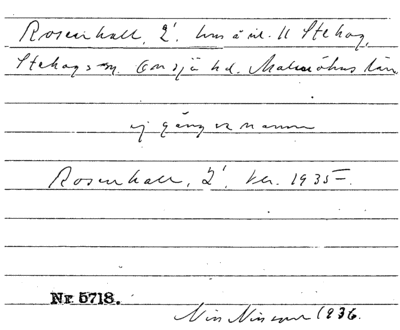 Rosenhall, 2', hus å nr. 11 Stehag,
Stehags sn. Onsjö hd. Malmöhus län.
ej gängse namn
Rosenhall, 2', 1935
Nr. 5718.
Nils Nilsson 1936.